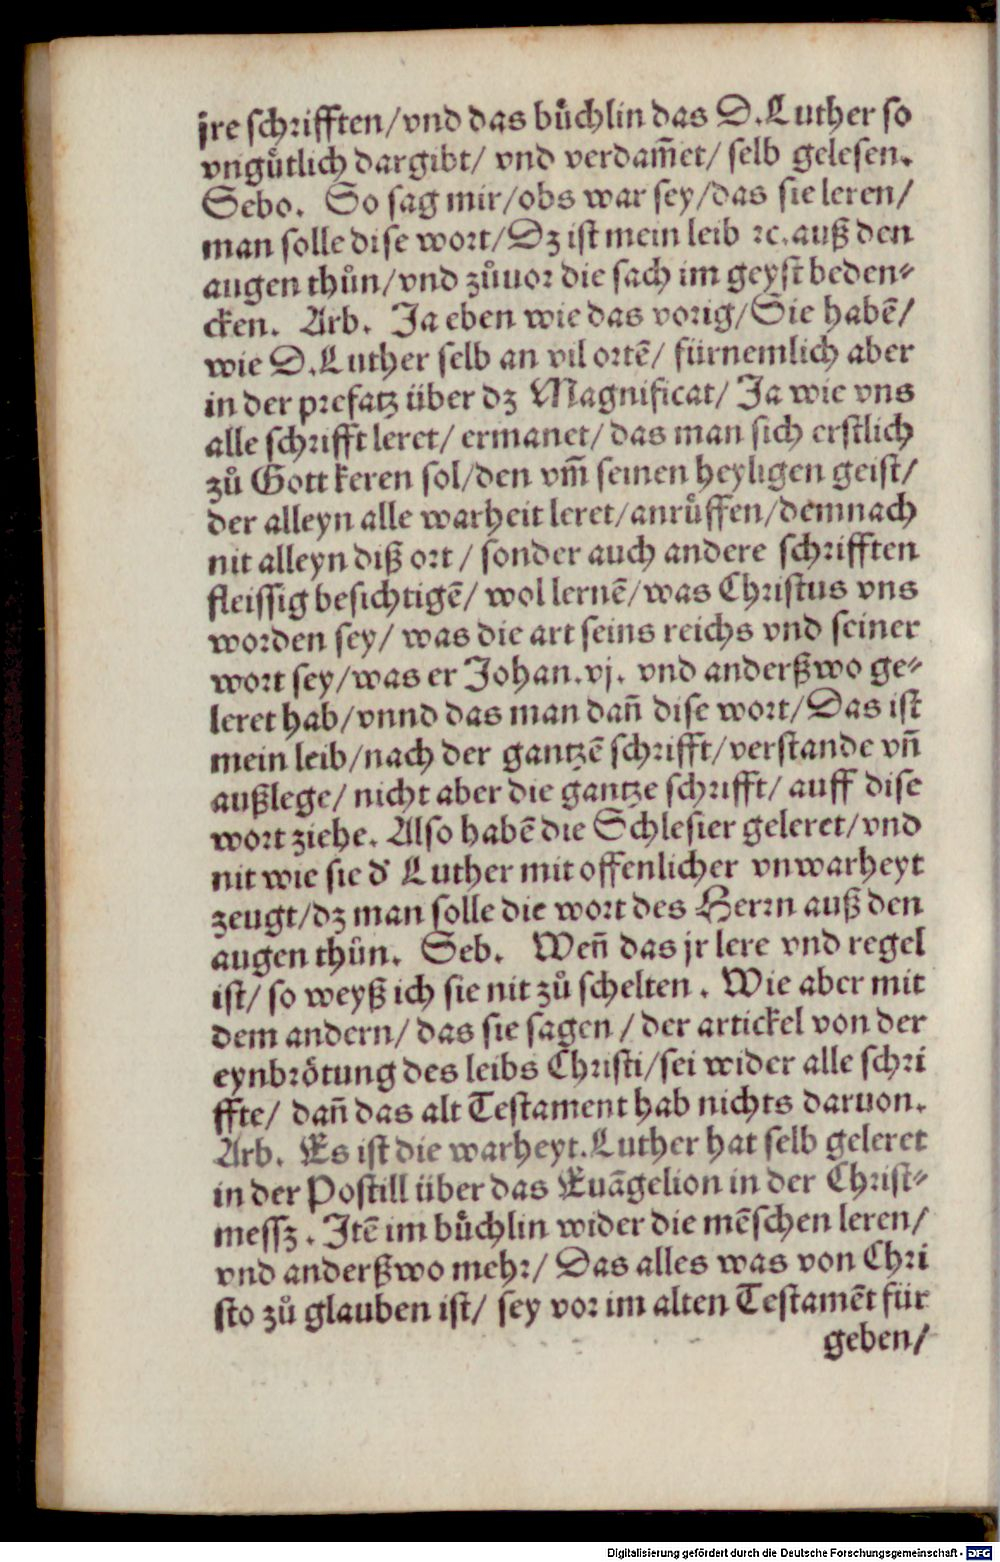 jre schrifften/vnd das buͤchlin das D.Luther so
vnguͤtlich dargibt/ vnd verdam̃et/ selb gelesen.
Sebo. So sag mir/obs war sey/das sie leren/
man solle dise wort/Dz ist mein leib ꝛc.auß den
augen thuͦn/vnd zuͦuor die sach im geyst beden⸗
cken. Arb. Ja eben wie das vorig/Sie habẽ/
wie D.Luther selb an vil ortẽ/ fürnemlich aber
in der prefatz über dz Magnificat/ Ja wie vns
alle schrifft leret/ ermanet/ das man sich erstlich
zuͦ Gott keren sol/den vm̃ seinen heyligen geist/
der alleyn alle warheit leret/anruͤffen/demnach
nit alleyn diß ort / sonder auch andere schrifften
fleissig besichtigẽ/ wol lernẽ/was Christus vns
worden sey/ was die art seins reichs vnd seiner
wort sey/was er Johan.vj. vnd anderßwo ge⸗
leret hab/vnnd das man dañ dise wort/Das ist
mein leib/nach der gantzẽ schrifft/verstande vñ
außlege/ nicht aber die gantze schrifft/ auff dise
wort ziehe. Also habẽ die Schlesier geleret/vnd
nit wie sie d̕ Luther mit offenlicher vnwarheyt
zeugt/dz man solle die wort des Herrn auß den
augen thuͦn. Seb. Weñ das jr lere vnd regel
ist/ so weyß ich sie nit zuͦ schelten. Wie aber mit
dem andern/ das sie sagen / der artickel von der
eynbroͤtung des leibs Christi/sei wider alle schri
ffte/ dañ das alt Testament hab nichts daruon.
Arb. Es ist die warheyt.Luther hat selb geleret
in der Postill über das Euãgelion in der Christ⸗
messz. Itẽ im buͤchlin wider die mẽschen leren/
vnd anderßwo mehr/ Das alles was von Chri
sto zuͦ glauben ist/ sey vor im alten Testamẽt für
geben/
Digitalisierung gefördert durch die Deutsche Forschungsgemeinschaft - DFG